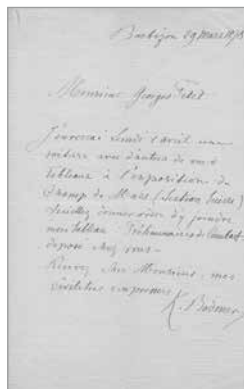 Barbizon 29 Mars 1878
Monsieur Georges Petit
J'enverrai Lundi 1 avril une
voiture avec d'autres de mes
tableaux à l'exposition du
Champ de Mars (Section Suisse)
Veuillez donner ordre d'y joindre
mon tableau Préliminaires de Combat
déposé chez vous
Recevez Cher Monsieur, mes
civilités empressées
K. Bodmer